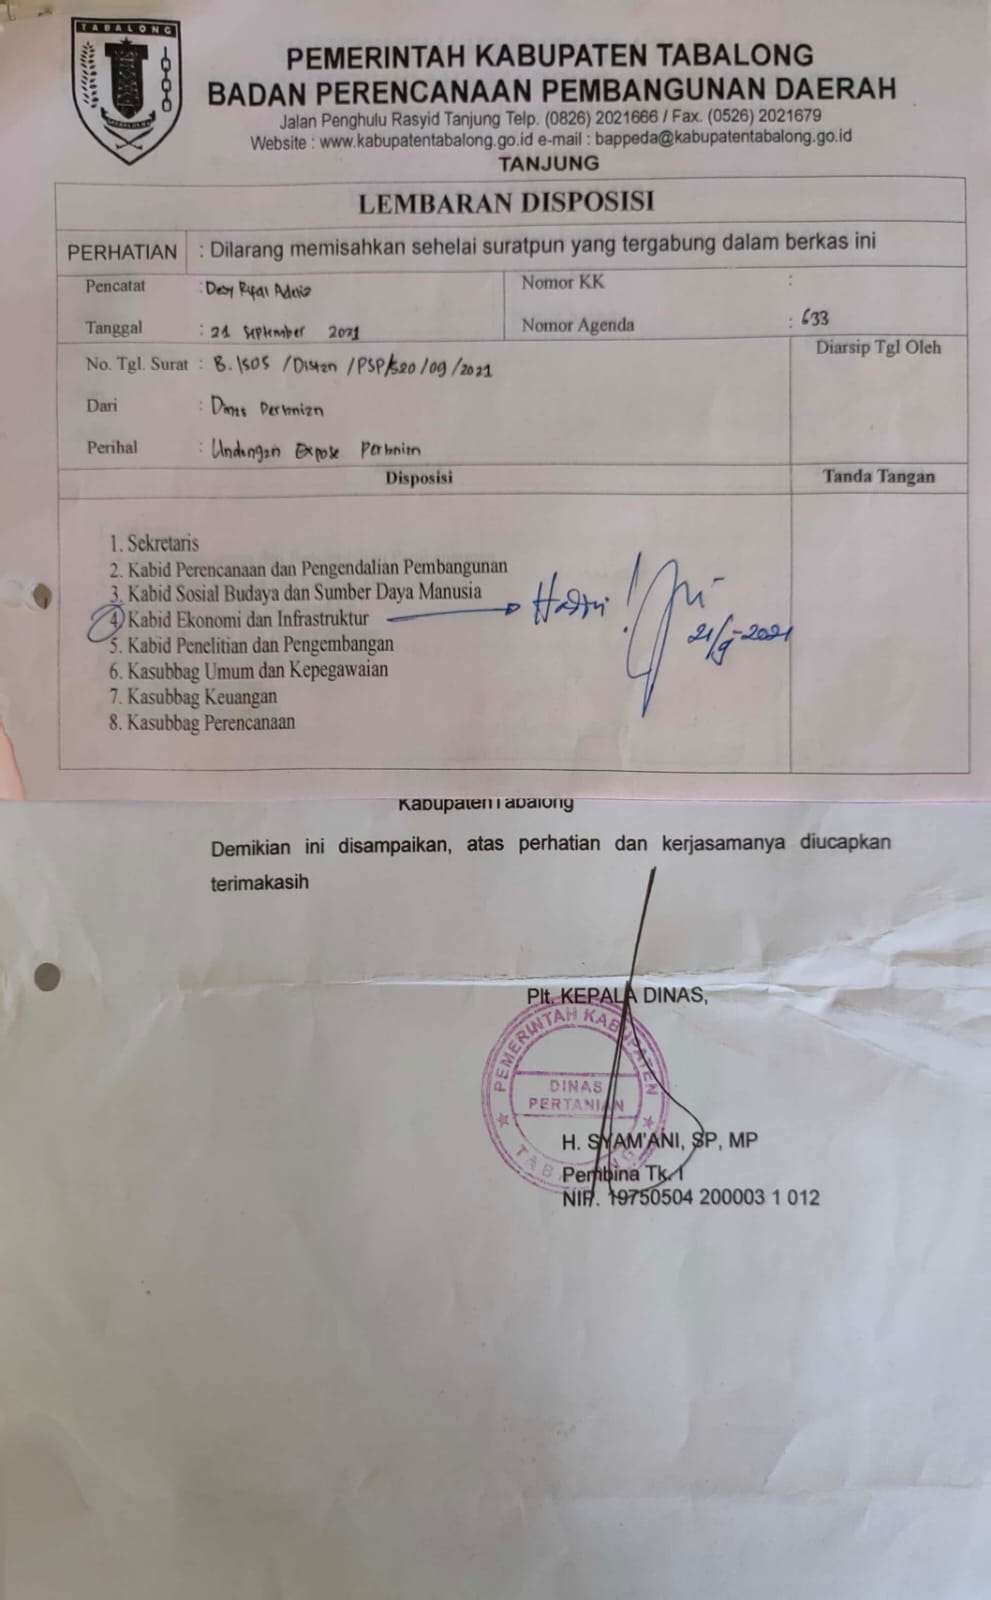 TABALONG
PEMERINTAH KABUPATEN TABALONG
BADAN PERENCANAAN PEMBANGUNAN DAERAH
Jalan Penghulu Rasyid Tanjung Telp. (0826) 2021666 / Fax. (0526) 2021679
Website : www.kabupatentabalong.go.id e-mail : bappeda@kabupatentabalong.go.id
TANJUNG
LEMBARAN DISPOSISI
PERHATIAN : Dilarang memisahkan sehelai suratpun yang tergabung dalam berkas ini
Pencatat :
Nomor KK :
Tanggal : 21 September 2021
Nomor Agenda : 633
Diarsip Tgl Oleh
No. Tgl. Surat : B.1505 /Distan /PSP/520/09/2021
Dari : Dinas Pertanian
Perihal : Undangan Expose Pertanian
Disposisi
Tanda Tangan
1. Sekretaris
2. Kabid Perencanaan dan Pengendalian Pembangunan
3. Kabid Sosial Budaya dan Sumber Daya Manusia
4. Kabid Ekonomi dan Infrastruktur
Hadiri !
21/9-2021
5. Kabid Penelitian dan Pengembangan
6. Kasubbag Umum dan Kepegawaian
7. Kasubbag Keuangan
8. Kasubbag Perencanaan
KabupatenTabalong
Demikian ini disampaikan, atas perhatian dan kerjasamanya diucapkan
terimakasih
Plt. KEPALA DINAS,
PEMERINTAH KABUPATEN
DINAS
PERTANIAN
TABALONG
H. SYAM'ANI, SP, MP
Pembina Tk. I
NIP. 19750504 200003 1 012